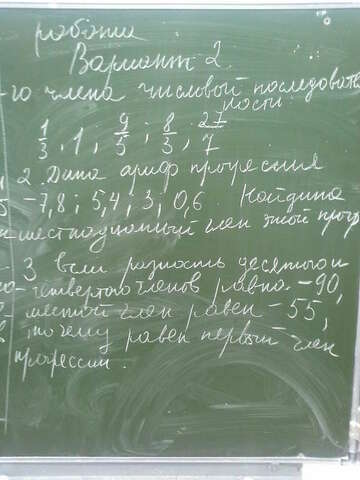 работы
Вариант 2.
-го члена числовой последователь
ности
1/3, 1, 9/5; 8/3; 27/7
2. Дана ариф прогрессия
-7,8; 5,4; 3; 0,6. Найдина
член этой прогр
- 3 если разность десятого и
четвертого членов равна -90,
член равен -55,
чему равен первый член
прогрессии.